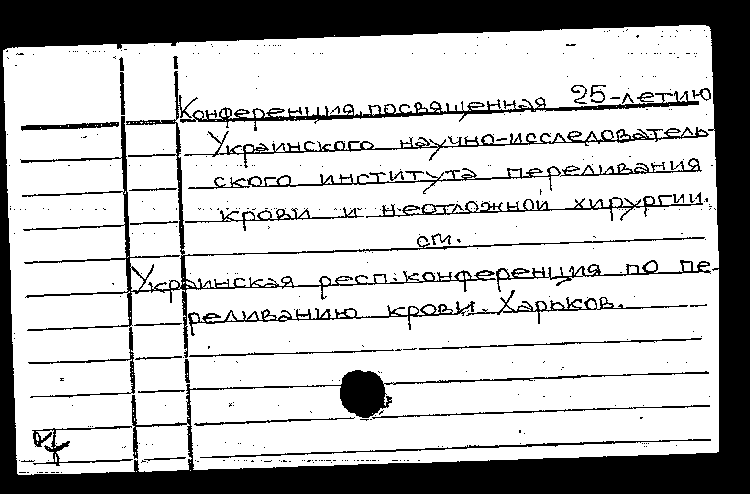 Конференция, посвященная 25-летию
Украинского научно-исследователь-
ского института переливания
крови и неотложной хирургии.
см.
Украинская респ. конференция по пе-
реливанию крови. Харьков.